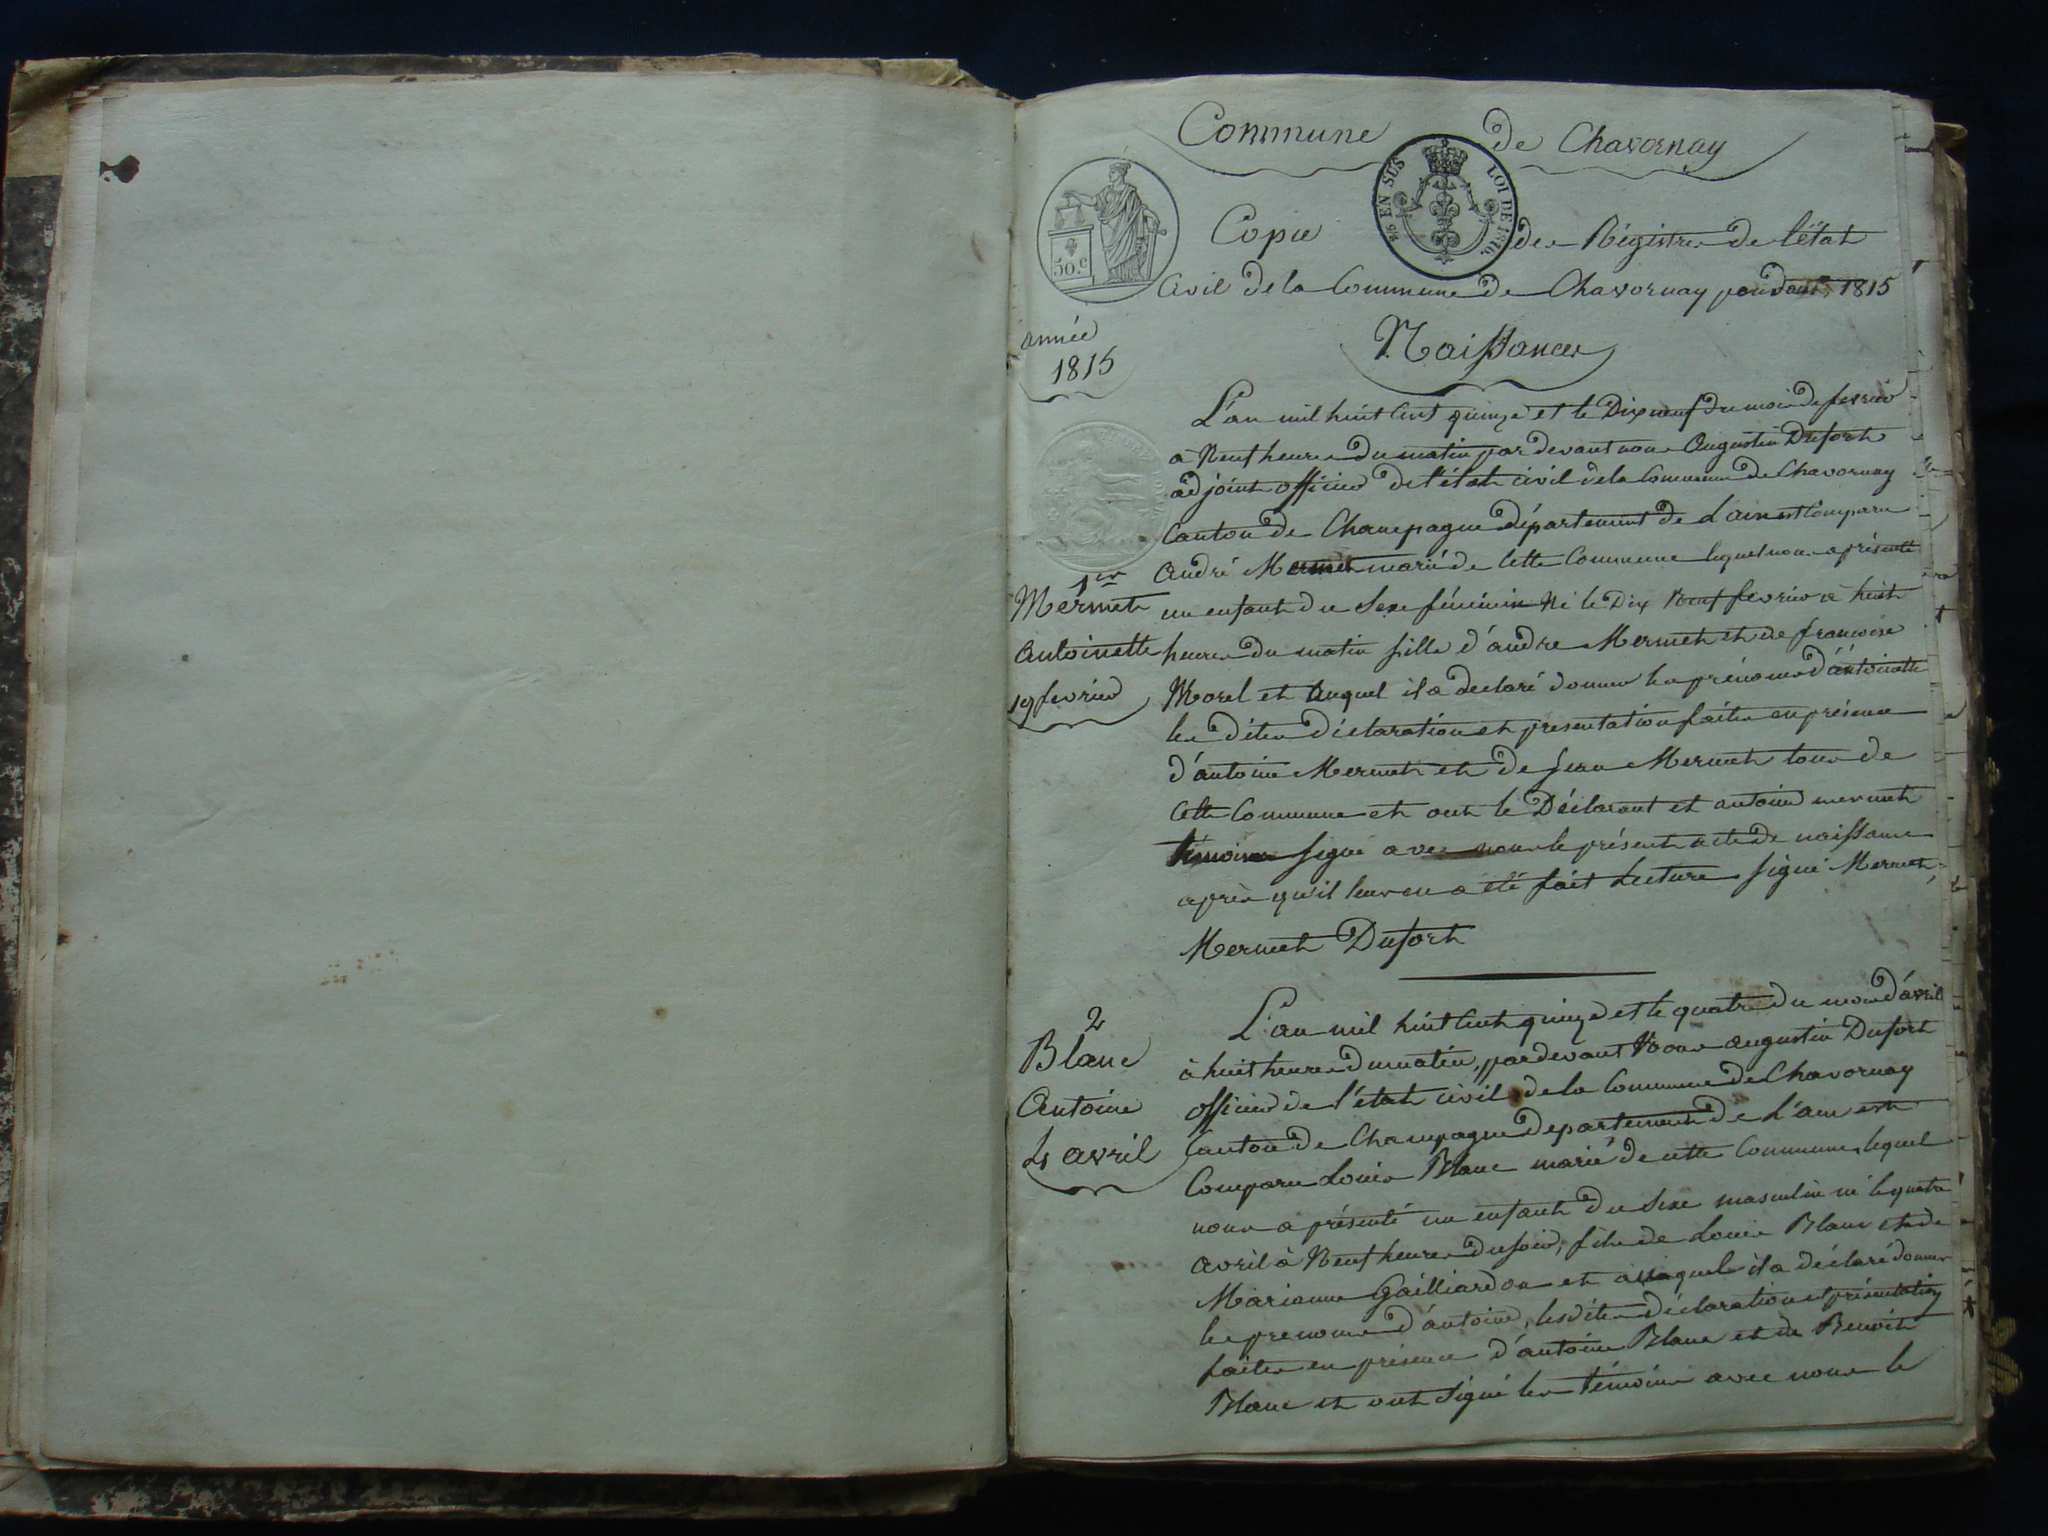 Commune de Chavornay
EN SUS LOI DE 1816
50.c
Copie des Régistres de l'état
Civil de la Commune de Chavornay pendant 1815
année
1815
Naissances
L'an mil huit cent quinze et le Dix neuf du mois de fevrier
à Neuf heures du matin par devant nous Augustin Dufort
adjoint officier de l'état civil de la Commune de Chavornay
Canton de Champagne département de L'ain est Comparu
André Mermet marié de cette Commune lequel nous a présenté
1er
Mérmet
Antoinette
19 fevrier
un enfant du Sexe féminin Né le Dix Neuf fevrier à huit
heures du matin fille d'andre Mermet et de francoise
Morel et Auquel il a declaré donner les prénoms d'antoinette
les dites déclaration et presentation faites en présence
d'antoine Mermet et de Jean Mermet tous de
Cette Commune et ont le Déclarant et antoine mermet
témoins signé avec nous le présent acte de naissance
après qu'il leur en a été fait Lecture signé Mermet,
Mermet Dufort
2
Blanc
Antoine
4 avril
L'an mil huit Cent quinze et le quatre du mois d'avril
à huit heures du matin, pardevant Nous augustin Dufort
officier de l'état civil de la Commune de Chavornay
Canton de Champagne departement de L'ain est
Comparu Louis Blanc marié de cette Commune, lequel
nous a présenté un enfant du Sexe masculin né le quatre
avril à Neuf heures du soir, fils de Louis Blanc et de
Marianne Gailliardon et auquel il a déclaré donner
les prenoms d'antoine, lesdites déclaration et présentation
faites en présence d'antoine Blanc et de Benoit
Blanc et ont signé les témoins avec nous le